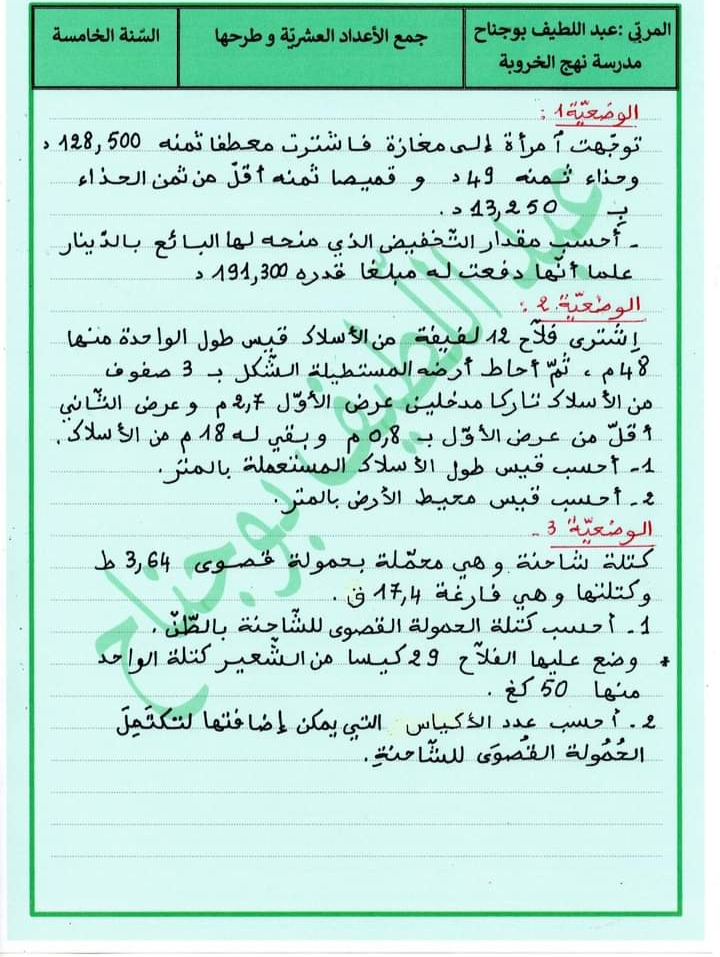 المربّي :عبد اللطيف بوجناح
مدرسة نهج الخروبة
جمع الأعداد العشريّة و طرحها
السّنة الخامسة
الوضعيّة 1 :
توجّهت آمرأة إلى مغازة فاشترت معطفا ثمنه 128,500 د
وحذاء ثمنه 49 د و قميصا ثمنه أقلّ من ثمن الحذاء
بـ 13,250 د .
- أحسب مقدار التّخفيض الذي منحه لها البائع بالدّينار
علما أنّها دفعت له مبلغا قدره 191,300 د
الوضعيّة 2 :
إشترى فلاّح 12 لفيفة من الأسلاك قيس طول الواحدة منها
48 م ، ثمّ أحاط أرضه المستطيلة الشّكل بـ 3 صفوف
من الأسلاك تاركا مدخلين عرض الأوّل 2,7 م و عرض الثّاني
أقلّ من عرض الأوّل بـ 0,8 م وبقي له 18 م من الأسلاك .
1- أحسب قيس طول الأسلاك المستعملة بالمتر.
2- أحسب قيس محيط الأرض بالمتر.
الوضعيّة 3 -
كتلة شاحنة و هي محمّلة بحمولة قصوى 3,64 ط
وكتلتها و هي فارغة 17,4 ق .
1- أحسب كتلة الحمولة القصوى للشّاحنة بالطّنّ .
* وضع عليها الفلاّح 29 كيسا من الشّعير كتلة الواحد
منها 50 كغ .
2- أحسب عدد الأكياس التي يمكن إضافتها لتكتَمِلَ
الحُمُولة القُصْوَى للشّاحنةِ .
عبد اللطيف بوجناح